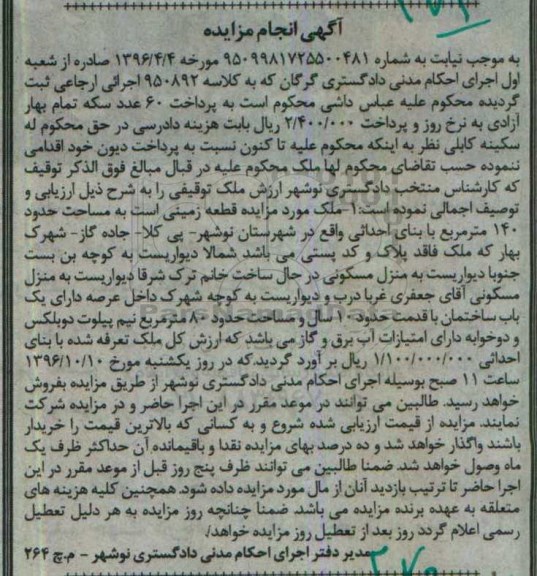 آگهی انجام مزایده
به موجب نیابت به شماره ۹۵۰۹۹۸۱۷۲۵۵۰۰۴۸۱ مورخه ۱۳۹۶/۴/۴ صادره از شعبه
اول اجرای احکام مدنی دادگستری گرگان که به کلاسه ۹۵۰۸۹۲ اجرائی ارجاعی ثبت
گردیده محکوم علیه عباس داشی محکوم است به پرداخت ۶۰ عدد سکه تمام بهار
آزادی به نرخ روز و پرداخت ۲/۴۰۰/۰۰۰ ریال بابت هزینه دادرسی در حق محکوم له
سکینه کابلی نظر به اینکه محکوم علیه تا کنون نسبت به پرداخت دیون خود اقدامی
ننموده حسب تقاضای محکوم لها ملک محکوم علیه در قبال مبالغ فوق الذکر توقیف
که کارشناس منتخب دادگستری نوشهر ارزش ملک توقیفی را به شرح ذیل ارزیابی و
توصیف اجمالی نموده است: ۱-ملک مورد مزایده قطعه زمینی است به مساحت حدود
۱۴۰ مترمربع با بنای احداثی واقع در شهرستان نوشهر- پی کلا- جاده گاز- شهرک
بهار که ملک فاقد پلاک و کد پستی می باشد شمالا دیواریست به کوچه بن بست
جنوبا دیواریست به منزل مسکونی در حال ساخت خانم ترک شرقا دیواریست به منزل
مسکونی آقای جعفری غربا درب و دیواریست به کوچه شهرک داخل عرصه دارای یک
باب ساختمان با قدمت حدود ۱۰ سال و مساحت حدود ۸۰ مترمربع نیم پیلوت دوبلکس
و دوخوابه دارای امتیازات آب برق و گاز می باشد که ارزش کل ملک تعرفه شده با بنای
احداثی ۱/۱۰۰/۰۰۰/۰۰۰ ریال بر آورد گردید.که در روز یکشنبه مورخ ۱۳۹۶/۱۰/۱۰
ساعت ۱۱ صبح بوسیله اجرای احکام مدنی دادگستری نوشهر از طریق مزایده بفروش
خواهد رسید. طالبین می توانند در موعد مقرر در این اجرا حاضر و در مزایده شرکت
نمایند. مزایده از قیمت ارزیابی شده شروع و به کسانی که بالاترین قیمت را خریدار
باشند واگذار خواهد شد و ده درصد بهای مزایده نقدا و باقیمانده آن حداکثر ظرف یک
ماه وصول خواهد شد. ضمنا طالبین می توانند ظرف پنج روز قبل از موعد مقرر در این
اجرا حاضر تا ترتیب بازدید آنان از مال مورد مزایده داده شود. همچنین کلیه هزینه های
متعلقه به عهده برنده مزایده می باشد. ضمنا چنانچه روز مزایده به هر دلیل تعطیل
رسمی اعلام گردد روز بعد از تعطیل روز مزایده خواهد/.
مدیر دفتر اجرای احکام مدنی دادگستری نوشهر - م.چ ۲۶۴